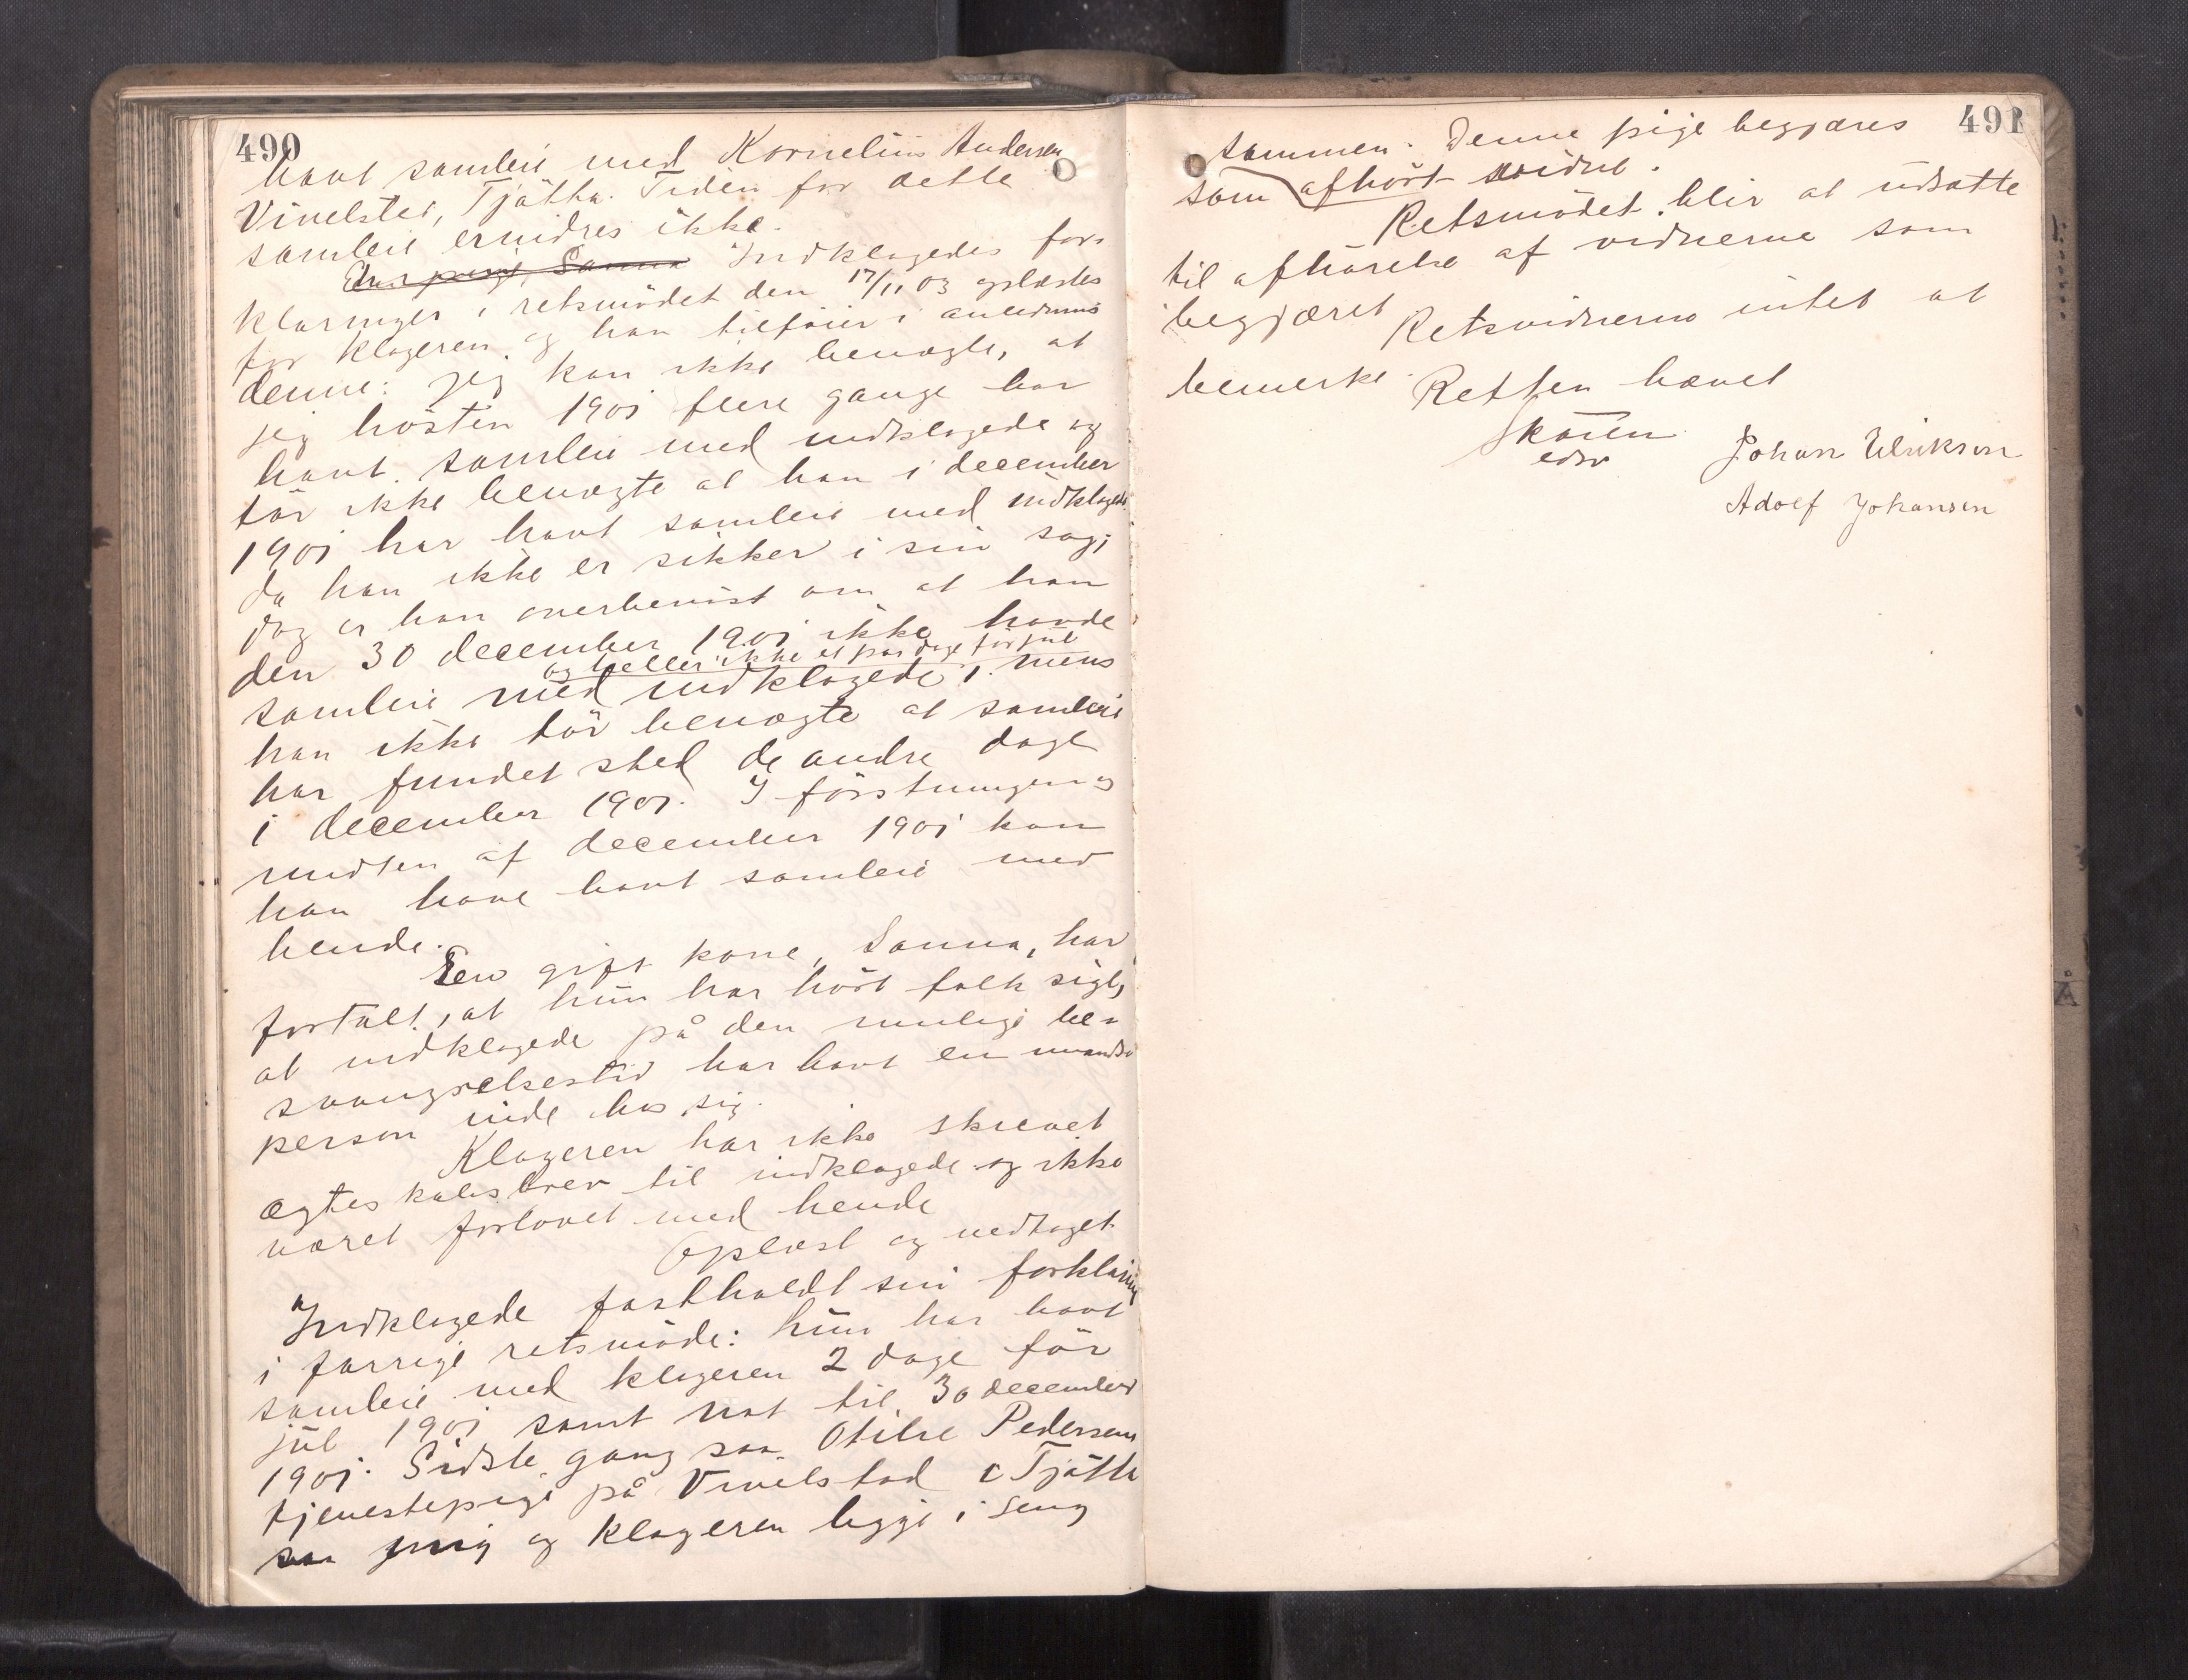 490
havt samleie med Kornelius Andersen
Vinelster, Tjøtta. Tiden for dette
samleie erindres ikke.
En pige, Sanna Indklagedes for-
klaringer i retsmödet den 17/11 03 oplæstes
for klageren og han tilföier i anledning
denne: Jeg kan ikke benægte, at
jeg hösten 1901 flere gange har
havt samleie med indklagede og
tör ikke benægte at han i december
1901 har havt samleie med indklagede
da han ikke er sikker i sin sag;
dog er han overbevist om at han
den 30 december 1901 ikke havde
og heller ikke et par dage för jul
samleie med indklagede, mens
han ikke tör benægte at samleie
har fundet sted de andre dage
i december 1901. I förstningen og
midten af december 1901 kan
han have havt samleie med
hende.
En gift kone, Sanna, har
fortalt, at hun har hört folk sige,
at indklagede på den mulige be-
svangrelsestid har havt en mands
person inde hos sig.
Klageren har ikke skrevet
ægteskabsbrev til indklagede og ikke
været forlovet med hende
Oplæst og vedtaget
Indklagede fastholdt sin forklaring
i forrige retsmöde: hun har havt
samleie med klageren 2 dage för
jul 1901 samt nat til 30 december
1901. Sidste gang saa Otilie Pedersen
tjenestepige på Vinelstad i Tjøtta
saa mig og klageren ligge i seng
491
sammen. Denne pige begjæres
som afhört vidne.
Retsmödet blir at udsætte
til afhörelse af vidnerne som
begjæret
Retsvidnerne intet at
bemerke.
Retten hævet
Skaren
edsv
Johan Ulriksen
Adolf Johansen